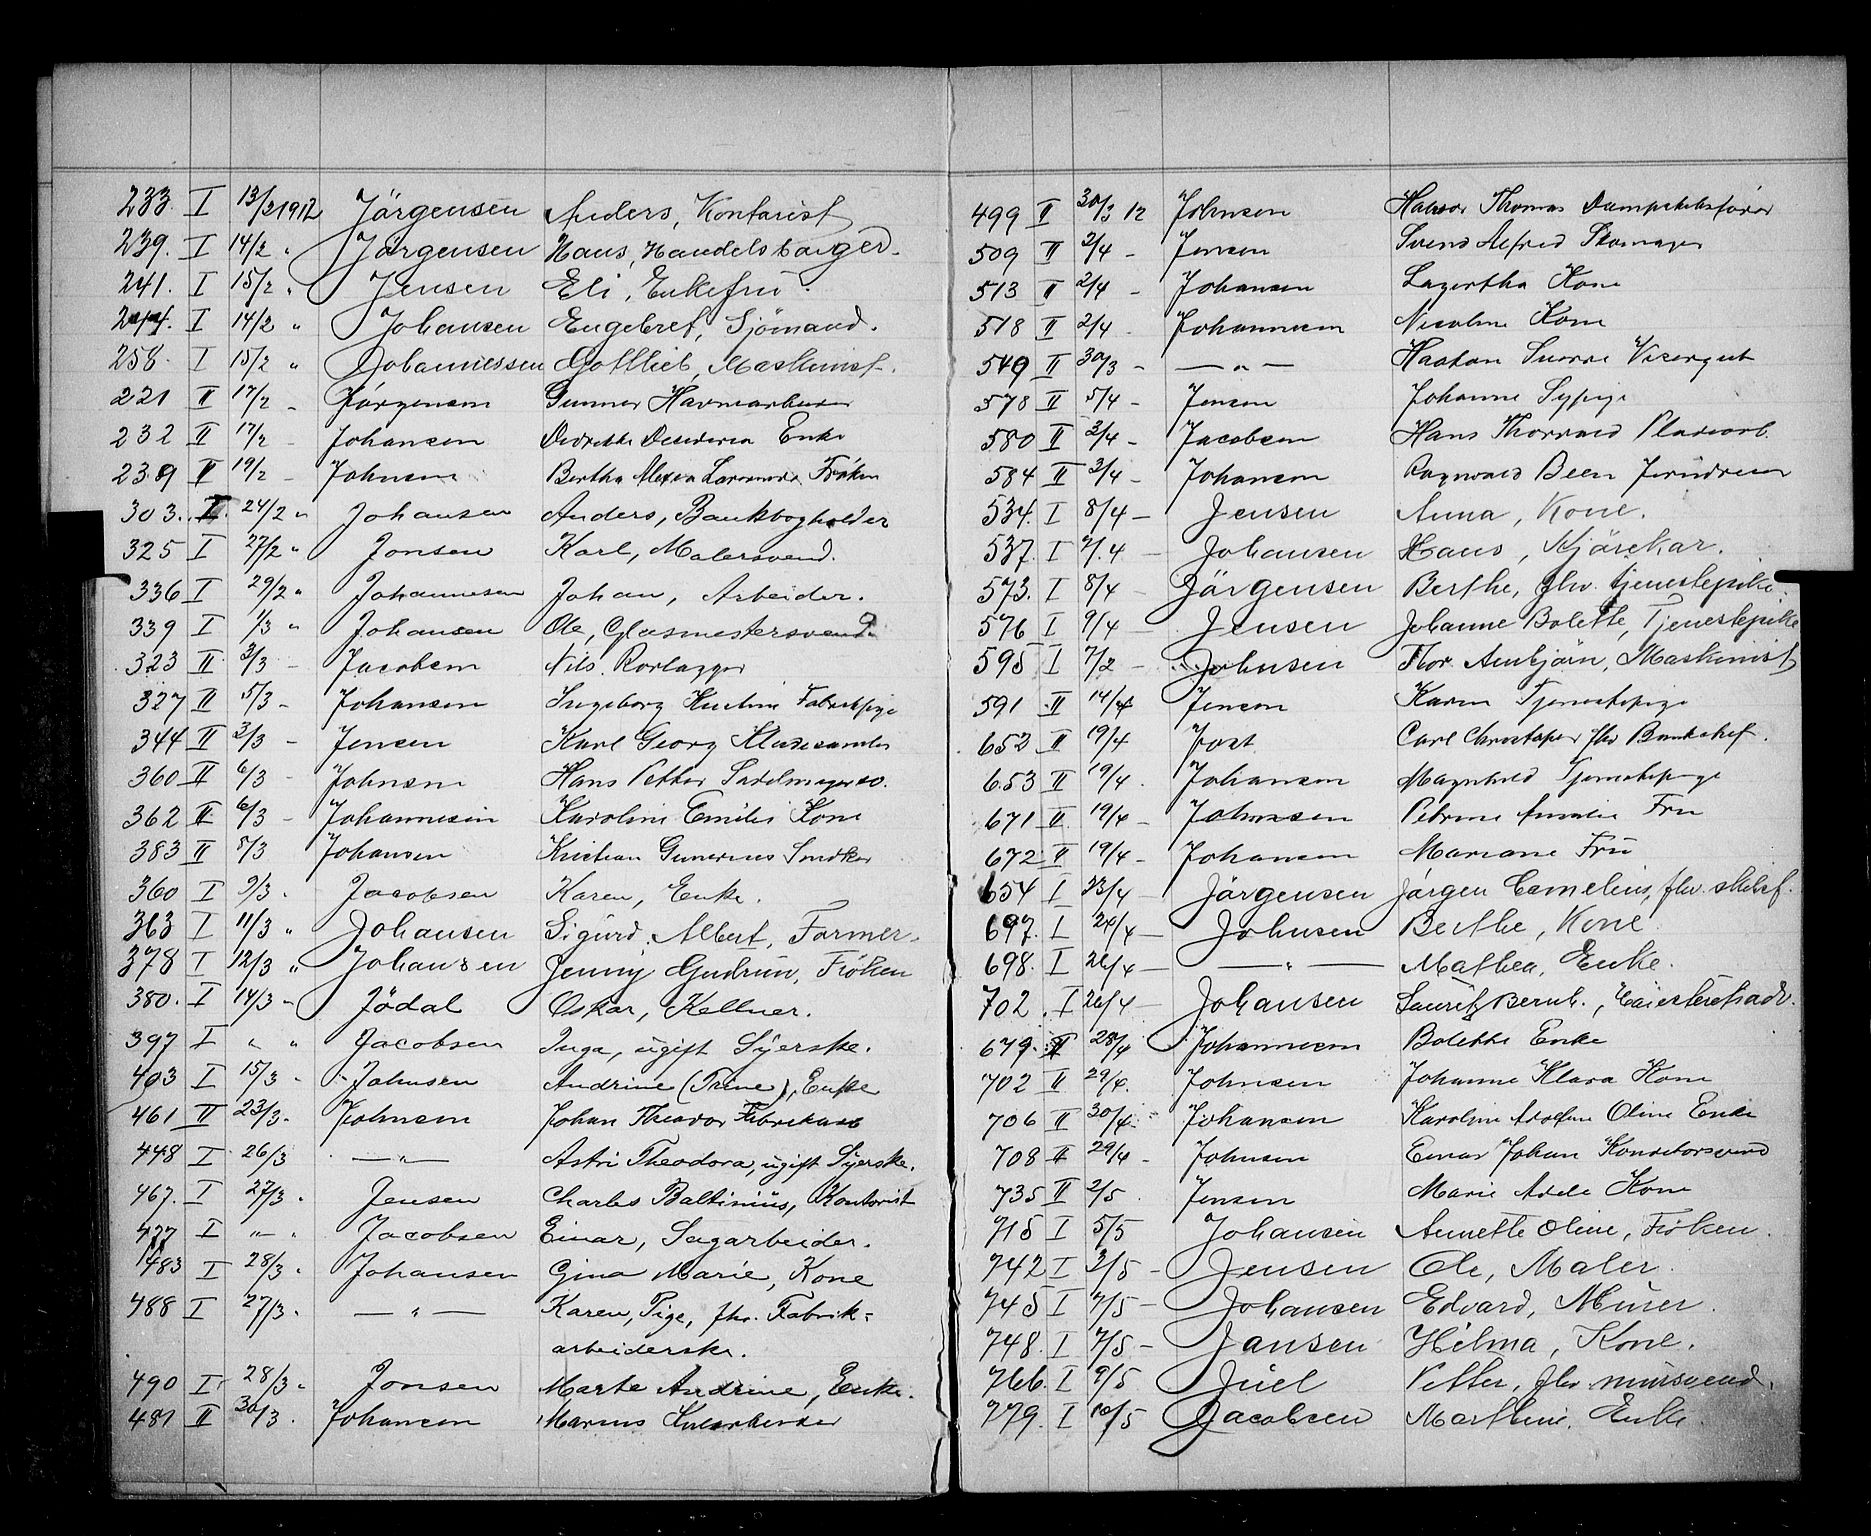 233. I 13/2 1912 Jörgensen Anders, Kontorist
239. I 14/2 " Jörgensen Hans, Handelsborger.
241. I 15/2 " Jensen Eli, Enkefru.
244. I 14/2 " Johansen Engebret, Sjömand.
258. I 15/2 " Johannessen Gottlieb, Maskinist.
221 II 17/2 - Jörgensen Gunner Havnearbeider
232 II 17/2 - Johansen Dedrikke Desideria Enke
239 II 19/2 - Johnsen Bertha Frøken
303. I. 24/2 " Johansen Anders, Bankbogholder
325 I 27/2 " Jonsen Karl, Malersvend.
336 I 29/2 " Johannesen Johan, Arbeider.
339 I 1/3 " Johansen Ole, Glasmestersvend.
323 II 3/3 - Jacobsen Nils. Rørlægger
327 II 5/3 - Johansen Ingeborg Fabrikpige
344 II 3/3 - Jensen Karl Georg
360 II 6/3 - Johnsen Hans Petter Sadelmagersv.
362 II 6/3 - Johannesen Karoline Emilie Kone
383 II 8/3 Johansen Kristian Gunerius Snedker
360 I 9/3 . Jacobsen Karen, Enke.
363 I 11/3 " Johansen Sigurd Albert, Farmer.
378 I 12/3 " Johansen Jenny Gudrun, Fröken
380. I 14/3 " Jödal Oskar, Kellner.
397 I " " Jacobsen Inga, ugift Syerske.
403 I 15/3 - Johnsen Andrine (Trine), Enke
461 II 23/3. Johnsen Johan Theodor Fabrikarb
448 I 26/3 . — " — Astri Theodora, ugift Syerske.
467. I 27/3 . Jensen Charles Baltinius, Kontorist
477 I " . Jacobsen Einar, Sagarbeider.
483 I 28/3 . Johansen Gina Marie, Kone
488 I 27/3 . — " — Karen, Pige, fhv. Fabrik-
arbeiderske.
490 I 28/3 . Jonsen Marte Andrine, Enke.
481 II 30/3 . Johansen Marius
499 II 30/3 12 Johnsen Halvor Thomas Dampskibsfører
509 II 2/4 - Jensen Svend Alfred Skomager
513 II 2/4 - Johansen Lagertha Kone
518 II 2/4 . Johannesen Nicoline Kone
549 II 30/3 - — " — Haakon Snorre Visergut
578 II 5/4 - Jensen Johanne Sypige
580 II 3/4 - Jacobsen Hans Thorvald
584 II 3/4 - Johansen Ragnvald Been
534. I 8/4 — Jensen Anna, Kone.
537. I 7/4 — Johansen Hans, Kjörekar.
573. I 8/4 - Jörgensen Berthe, fhv. tjenestepike.
576 I 9/4 — Jensen Johanne Bolette, Tjenestepike
595 I 7/2 — Johnsen Thor Arnbjörn, Maskinist
591 II 14/4 Jensen Karen Tjenestepige
652 II 19/4 Jost Carl Christopher fhv Bankchef.
653 II 19/4 . Johansen Magnhild Tjenestepige
671 II 19/4 - Johnssen Petrine Amalie Fru
672 II 19/4 - Johansen Mariane Fru
654 I 23/4 - Jörgensen Jörgen Cornelius, fhv. skibsf.
697. I 24/4 — Johnsen Berthe, Kone
698. I 26/4 — — " — Mathea, Enke.
702 . I 26/4 — Johansen Lauritz Bernh.,
679. II 28/4 Johannesen Bolette Enke
702 II 29/4. Johnsen Johanne Klara Kone
706 II 30/4 Johansen Karoline Adolfine Oline Enke
708 II 29/4 - Johnsen Einar Johan Konditorsvend
735 II 2/5 . Jensen Marie Adele Kone
715 I 5/5 Johansen Annette Oline, Fröken.
742 I 3/5 - Jensen Ole, Maler.
745 I 7/5 - Johansen Edvard, Murer.
748. I 7/5 - Jansen Hilma, Kone.
766. I 9/5 Juel Petter, fhv mursvend.
779. I 10/5 Jacobsen Marthine, Enke.